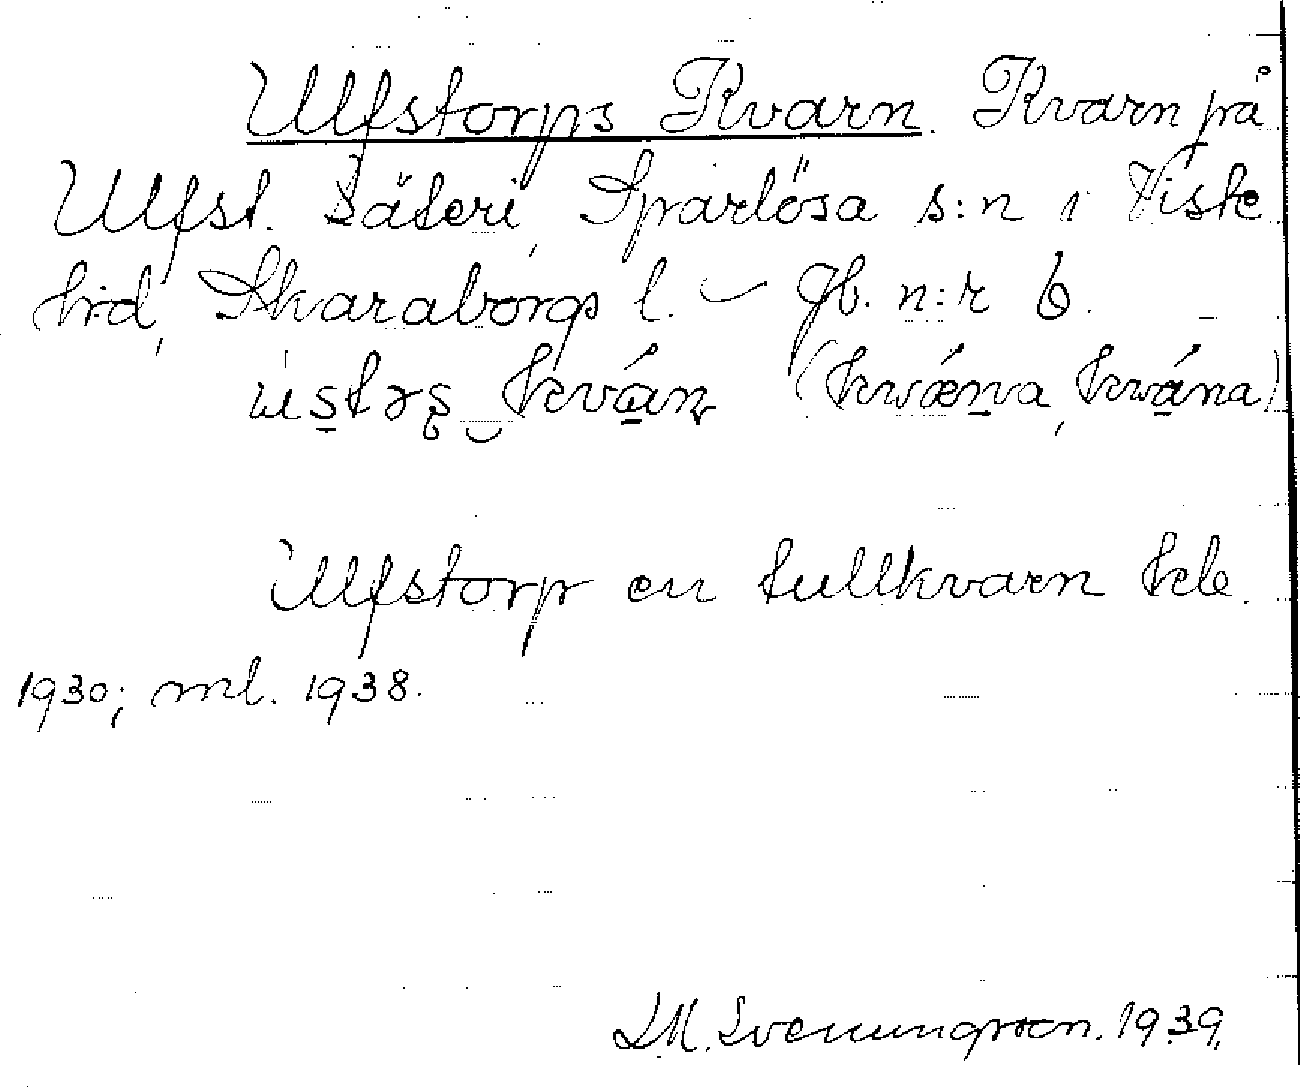 Ulfstorps Kvarn. Kvarn på
Ulfst. Säteri, Sparlösa s:n i Viste
hrd, Skaraborgs l. – Jb. n:r 6.
ustrs kván (kwæna, kwána)
Ulfstorp en tullkvarn Kb.
1930; ml. 1938.
L.M. Svenungsson. 1939.